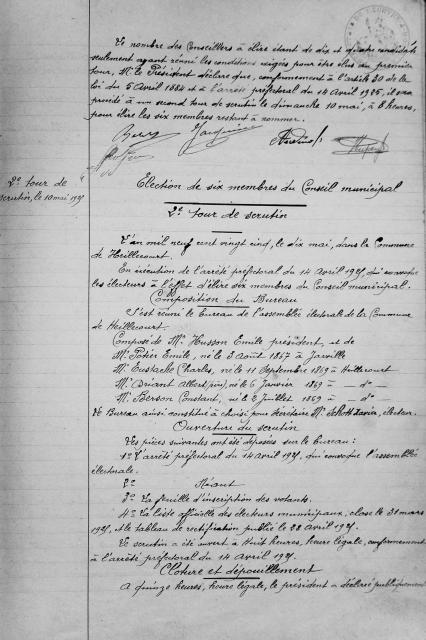 Le nombre des Conseillers à élire étant de dix et quatre candidats
seulement ayant réuni les conditions exigées pour être élus au premier
tour, Mr le Président déclare que, conformément à l'article 30 de la
loi du 5 Avril 1884 et à l'arrêté préfectoral du 14 Avril 1925, il sera
procédé à un second tour de scrutin le dimanche 10 mai, à 8 heures,
pour élire les six membres restant à nommer.
2e tour de
scrutin, le 10 mai 1925
Election de six membres du Conseil municipal
2e tour de scrutin
L'an mil neuf cent vingt cinq, le dix mai, dans la Commune
de Heillecourt.
En exécution de l'arrêté préfectoral du 14 Avril 1925 qui convoque
les électeurs à l'effet d'élire six membres du Conseil municipal.
Composition du Bureau
S'est réuni le bureau de l'assemblée électorale de la Commune
de Heillecourt.
Composé de Mr Husson Emile président, et de
Mr Potier Emile, né le 3 Août 1867 à Jarville
Mr Eustache Charles, né le 11 Septembre 1869 à Heillecourt
Mr Briant Albert, né le 6 Janvier 1869 à — do —
Mr Berson Constant, né le 8 Juillet 1869 à — do —
Le Bureau ainsi constitué a choisi pour Secrétaire Mr Xavier, électeur.
Ouverture du scrutin
Les pièces suivantes ont été déposées sur le bureau :
1o L'arrêté préfectoral du 14 avril 1925, qui convoque l'assemblée
électorale.
2o Néant
3o La feuille d'inscription des votants.
4o La liste officielle des électeurs municipaux, close le 31 mars
1925, et le tableau de rectification publié le 28 Avril 1925.
Le scrutin a été ouvert à Huit heures, heure légale, conformément
à l'arrêté préfectoral du 14 Avril 1925.
Clôture et dépouillement
A quinze heures, heure légale, le président a déclaré publiquement